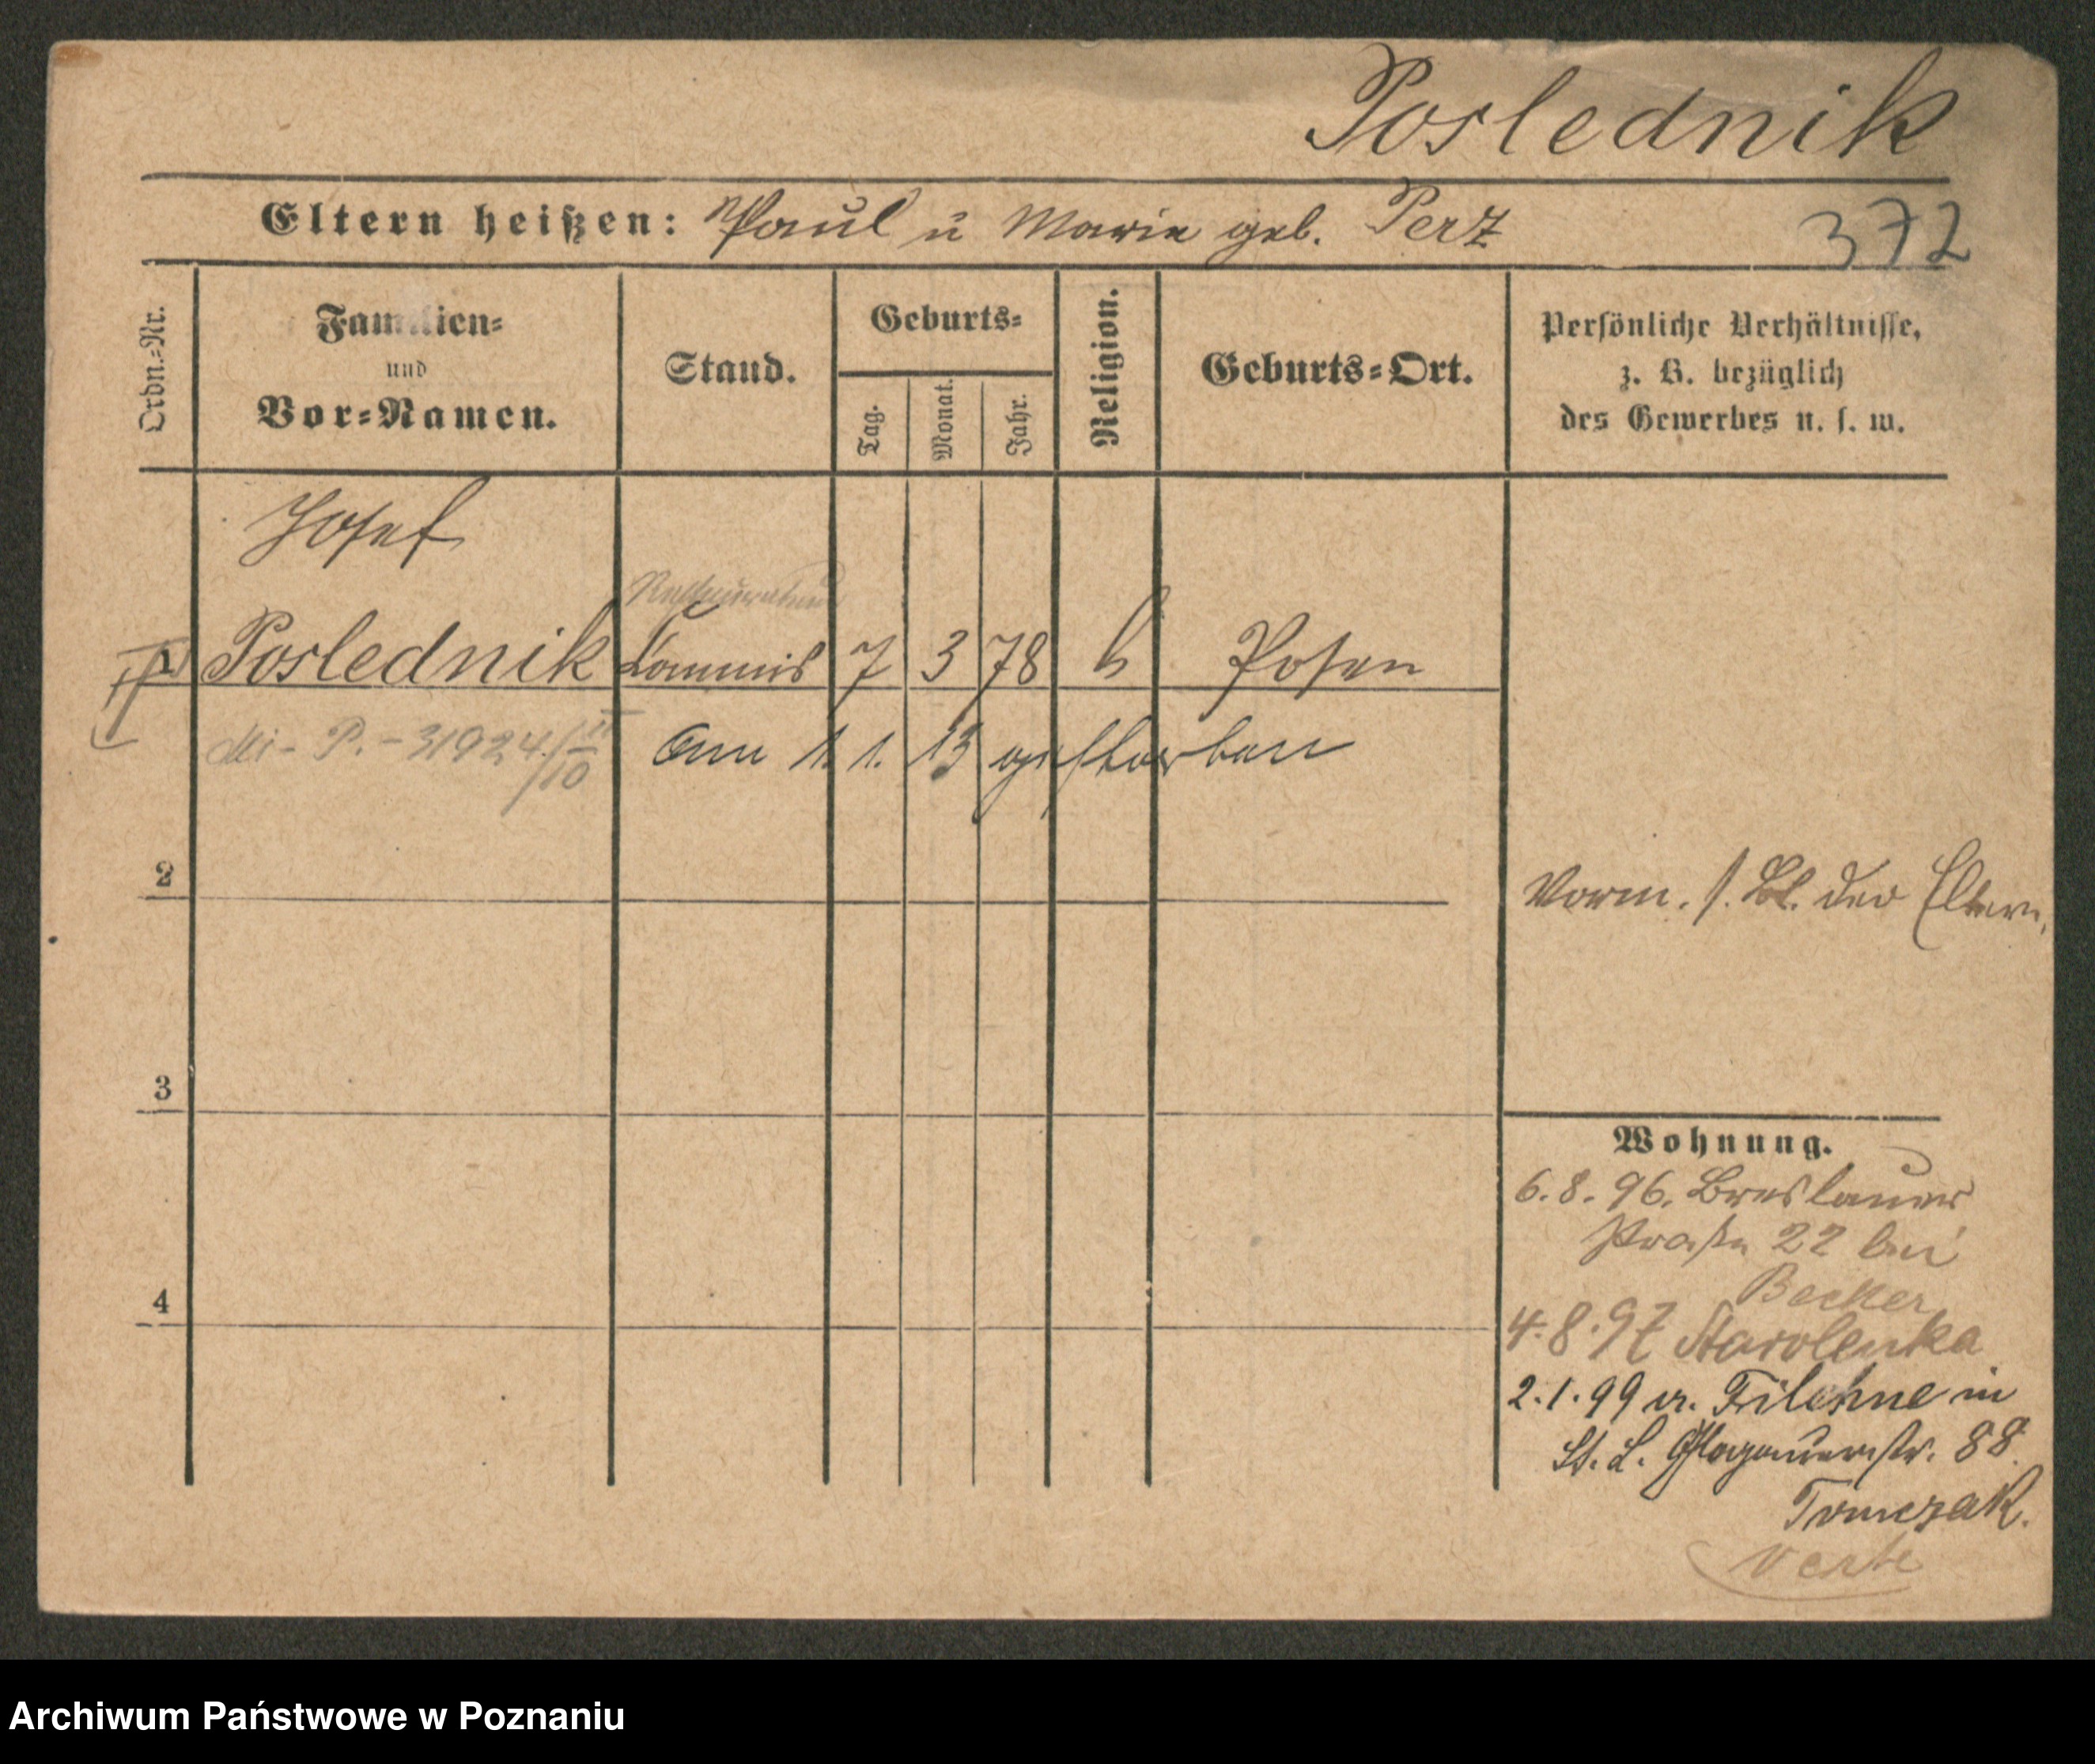 Poslednik
Eltern heißen: Paul u Marie geb. Perz
372
Ordn.=Nr.
Familien=
und
Vor=Namen.
Stand.
Geburts=
Tag.
Monat.
Jahr.
Religion.
Geburts=Ort.
Persönliche Verhältnisse,
z. B. bezüglich
des Gewerbes u. s. w.
Josef
Restaurateur
1 Poslednik Commis 7 3 78 k Posen
Mi - P. - 31924
Am 1. 1. 13 gestorben
2
Vorm. s. Bl. der Eltern.
3
Wohnung.
6. 8. 96. Breslauer
straße 22 bei
Becker
4
4. 8. 97 Starolenka
2. 1. 99 v. Filehne in
St. L. Glogauerstr. 88.
Tomczak.
verte
Archiwum Państwowe w Poznaniu